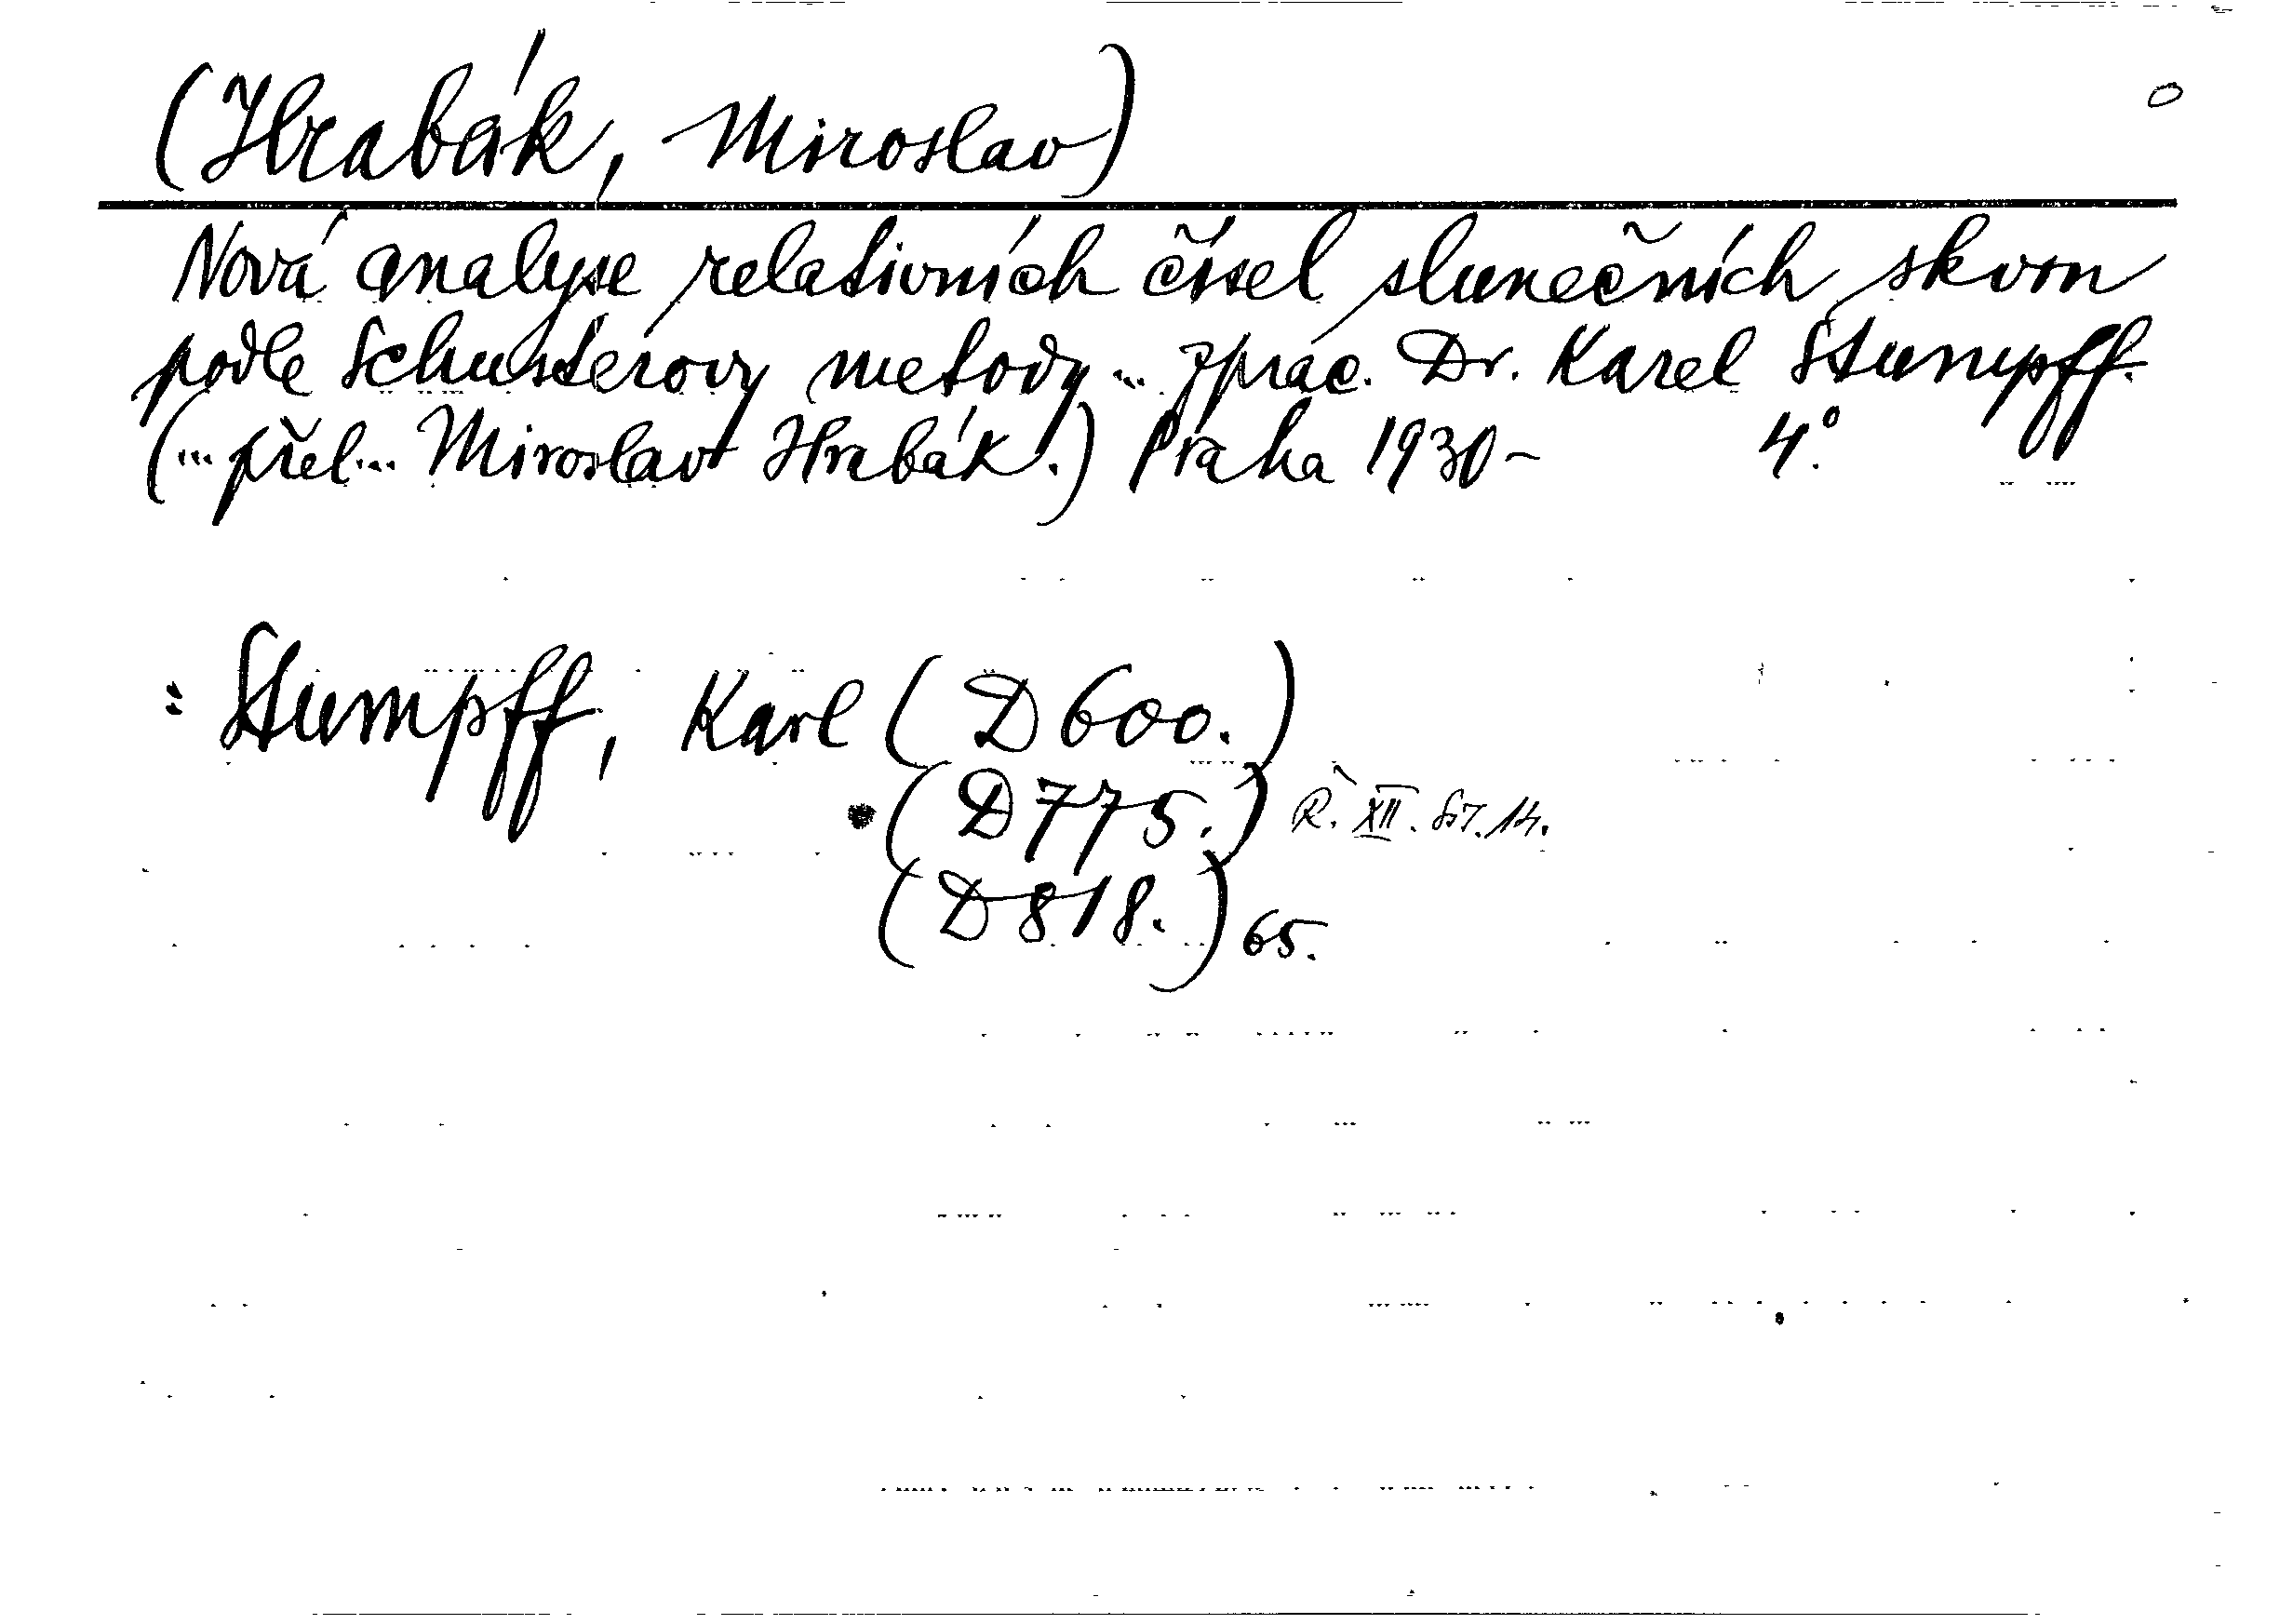 (Hrabák, Miroslav)
Nová analyse relativních čísel slunečních skvrn
podle Schusterovy metody ... zprac. Dr. Karel Stumpff.
(... přel... Miroslav Hrabák.) Praha 1930- 4°.
: Stumpff, Karl (D 600.)
(D 775.) Ř. XII. čs7. 14.
(D 818.) 65.